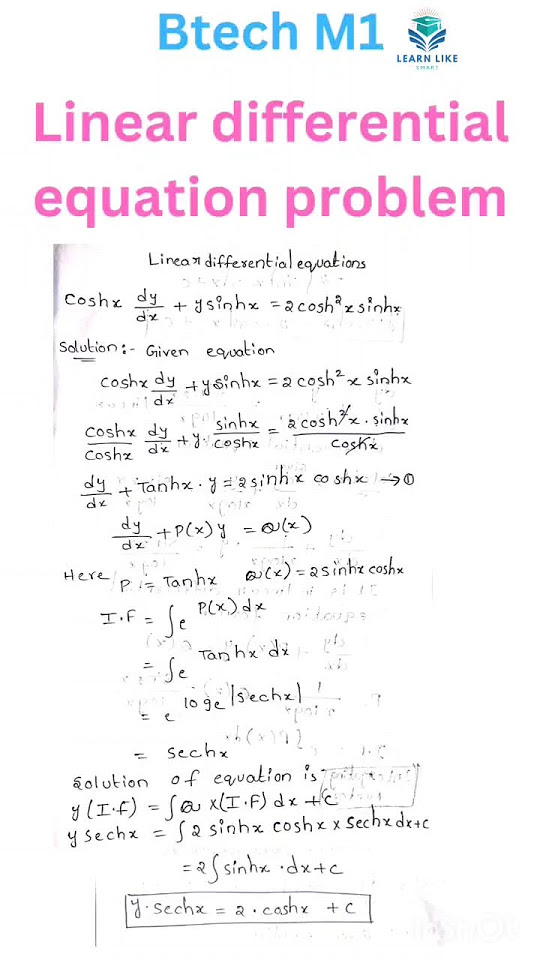 Btech M1
LEARN LIKE
SMART
Linear differential
equation problem
Linear differential equations
Coshx dy/dx + y sinhx = 2 cosh²x sinhx
Solution :- Given equation
coshx dy/dx + y sinhx = 2 cosh² x sinhx
coshx/coshx dy/dx + y · sinhx/coshx = 2 cosh²x · sinhx/coshx
dy/dx + Tanhx · y = 2 sinh x coshx → ①
dy/dx + P(x) y = Q(x)
Here P = Tanhx Q(x) = 2 sinhx coshx
I.F = ∫e^P(x) dx
= ∫e^Tanhx dx
= e^loge |sechx|
= sechx
Solution of equation is
y (I.F) = ∫Q x (I.F) dx + C
y sechx = ∫2 sinhx coshx x sechx dx + c
= 2∫sinhx · dx + c
y · sechx = 2 · coshx + c